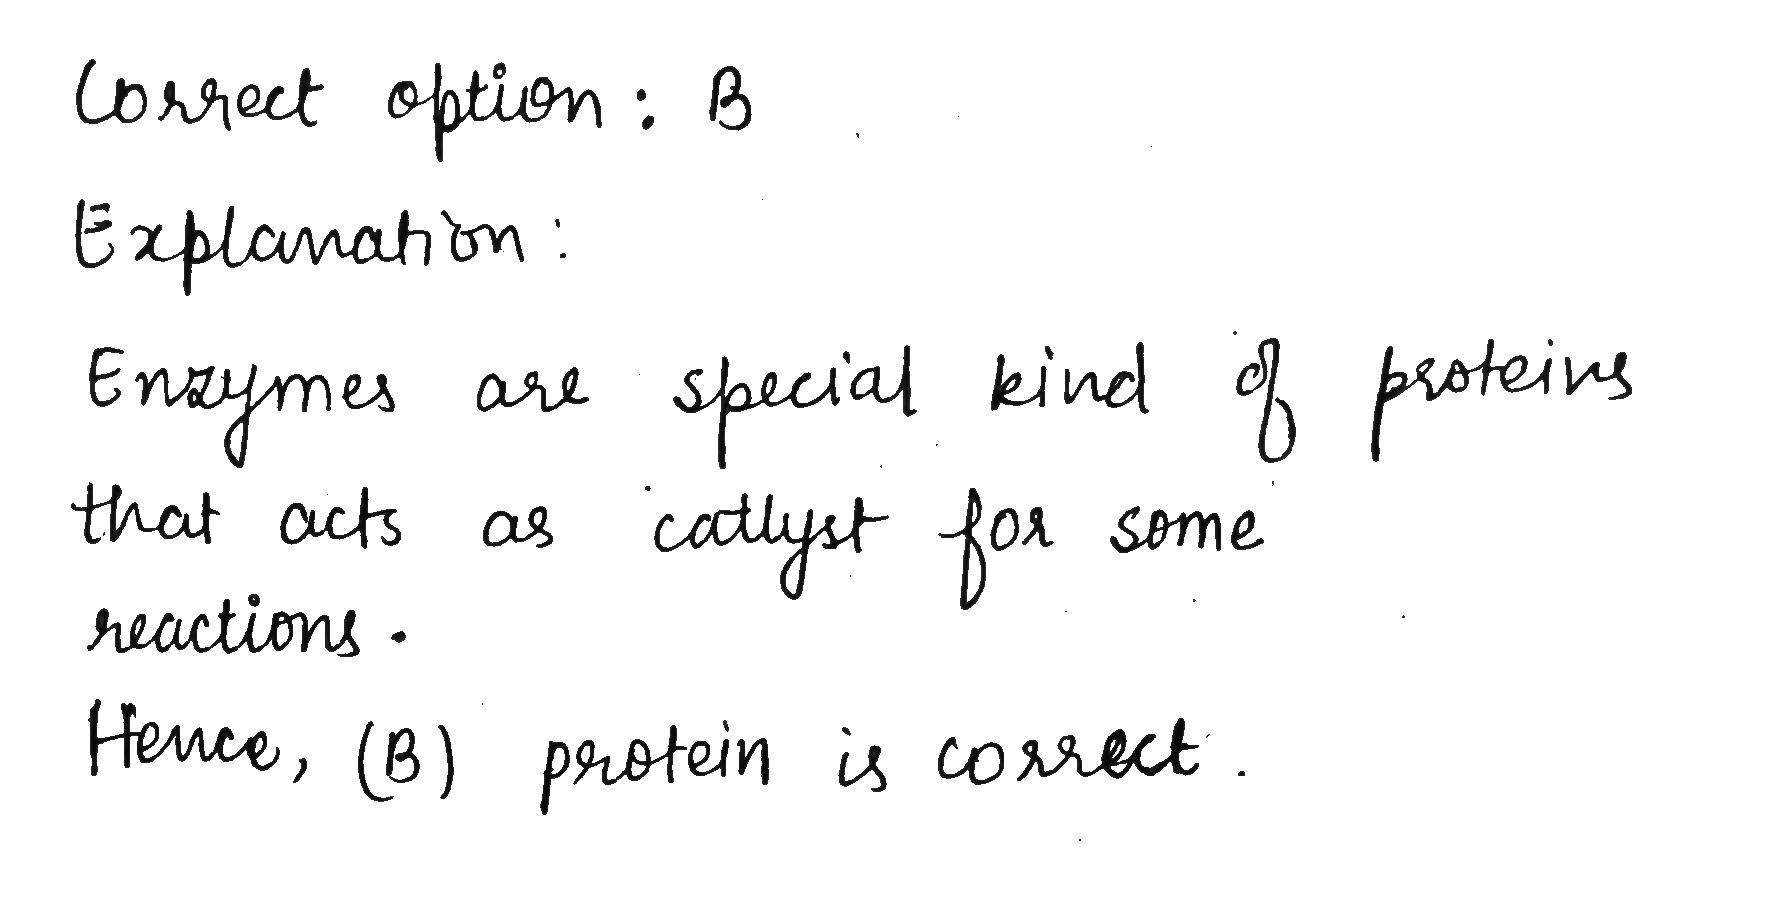 Correct option : B
Explanation :
Enzymes are special kind of proteins
that acts as catlyst for some
reactions.
Hence, (B) protein is correct.